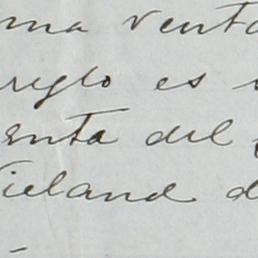 ma vent
reglo es
enta del
Vieland d